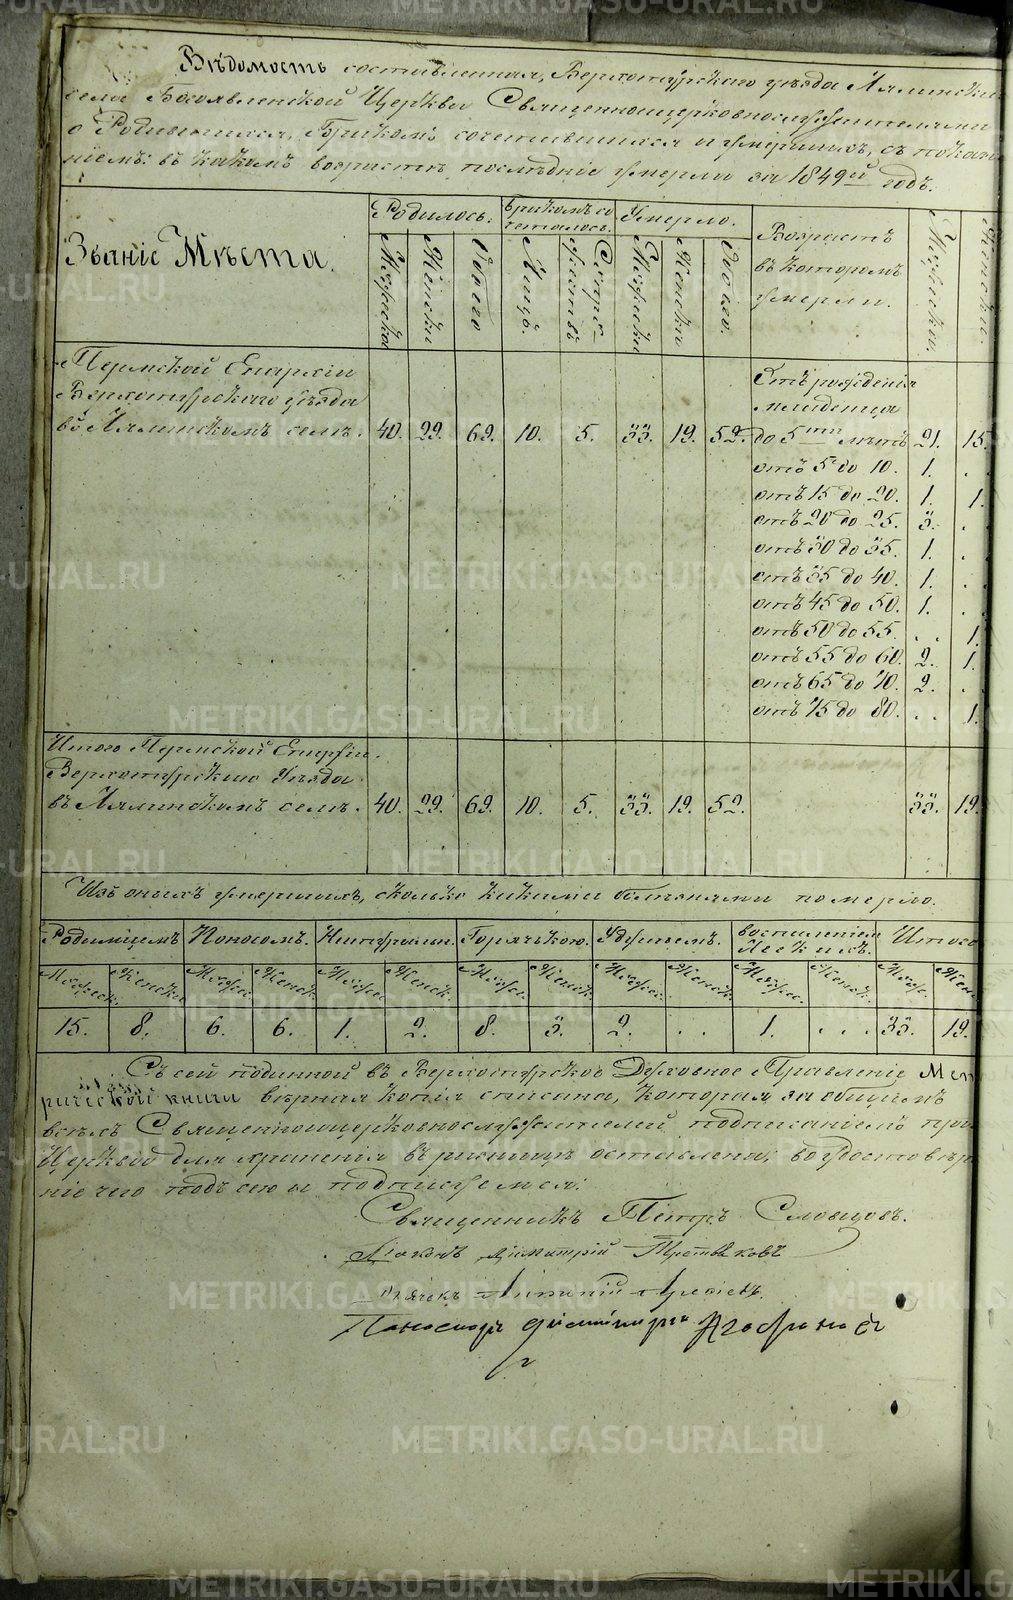 Вѣдомость составленная, Верхотурскаго уѣзда Лялинска
села Богоявленской Церкви Священноцерковнослужителями
о Родившихся, Бракомъ сочетавшихся и умершихъ, съ показа
ніемъ: въ какомъ возрастѣ послѣдніе умерли за 1849й годъ.
Званіе Мѣста.
Родилось:
Бракомъ со
четалось.
Умерло.
Возрастъ
въ которомъ
умерли.
Мужески.
Женски.
Мужеска
Женски
Обоего
Лицъ.
Супружествъ
Мужеска
Женски
Обоего.
Пермской Епархіи
Верхотурскаго уѣзда
во Лялинскомъ селѣ. 40. 29. 69. 10. 5. 33. 19. 52.
Отъ рожденія
младенца
до 5ти лѣтъ 21. 15.
отъ 5 до 10. 1. .
отъ 15 до 20. 1. 1.
отъ 20 до 25. 3. .
отъ 30 до 35. 1. .
отъ 35 до 40. 1. .
отъ 45 до 50. 1. .
отъ 50 до 55. . . 1.
отъ 55 до 60. 2. 1.
отъ 65 до 70. 2. .
отъ 75 до 80. . . 1.
Итого Пермской Епархіи.
Верхотурскаго Уѣзда
въ Лялинскомъ селѣ. 40. 29. 69. 10. 5. 33. 19. 52. 33. 19.
Изъ оныхъ умершихъ, сколько какими болѣзнями померло.
Родимцемъ Поносомъ. Натуральн. Горячькою. Удушьемъ. воспаленіемъ Легкихъ. Итого
Мужеск. Женски Мужес. Женск. Мужес Женск. Мужес. Женск. Мужес. Женск. Мужес. Женск. Мужс. Жен
15. 8. 6. 6. 1. 2. 8. 3. 2. . . 1. . . . 33. 19.
Съ сей подинной въ Верхотурское Духовное Правленіе Мет
рической книги вѣрная копія списана, которая за общимъ
всѣхъ Священноцерковнослужителей подписаніемъ при
Церквѣ для храненія въ ризницѣ оставлена; во удостовѣре
ніе чего подъ сею и подписуемся:
Священникъ Петръ Словцовъ.
Діаконъ Димитрій Третьяковъ
Дьячекъ
Пономарь Димитрій
METRIKI.GASO-URAL.RU